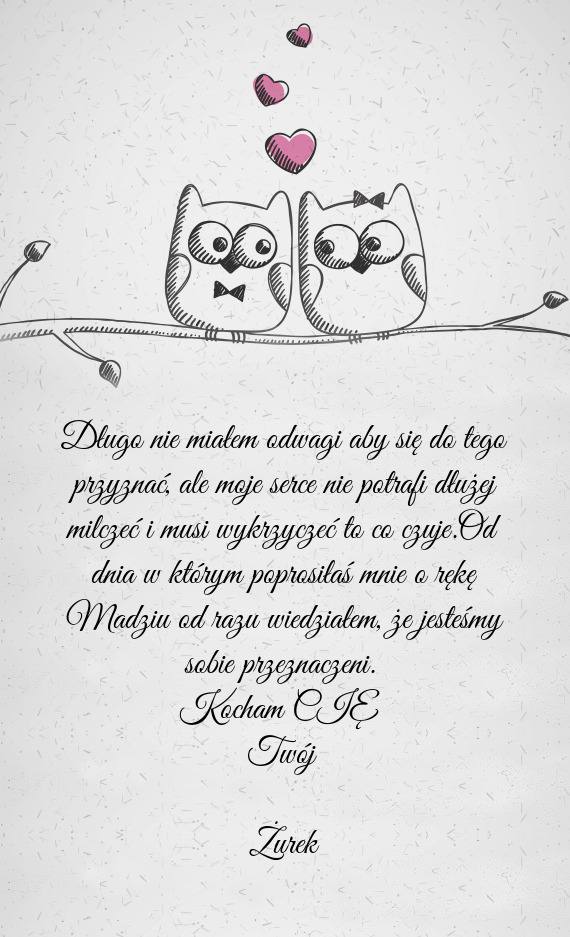 Długo nie miałem odwagi aby się do tego
przyznać, ale moje serce nie potrafi dłużej
milczeć i musi wykrzyczeć to co czuje.Od
dnia w którym poprosiłaś mnie o rękę
Madziu od razu wiedziałem, że jesteśmy
sobie przeznaczeni.
Kocham CIĘ
Twój
Żurek